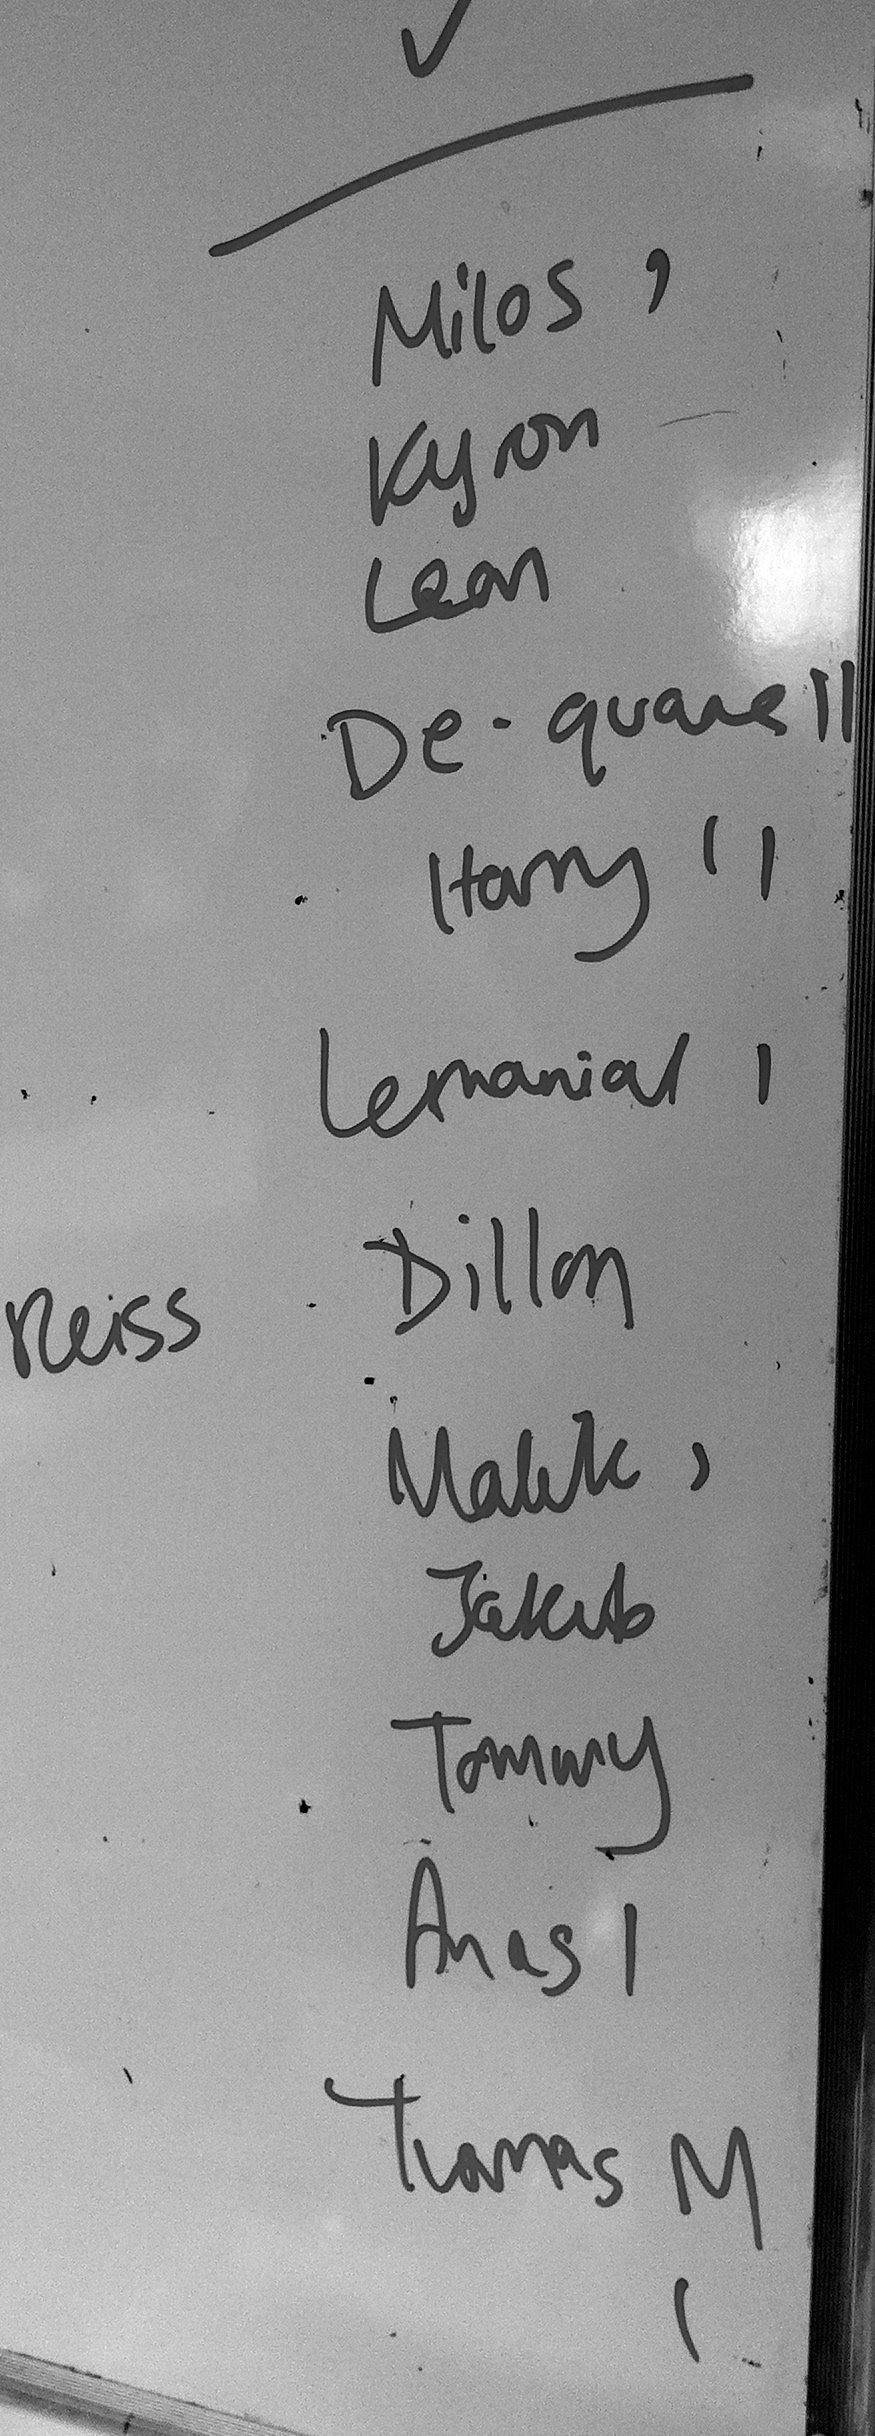 ✓
Milos ,
Kyron
Leon
De-quane ||
Harry ||
Lemanial |
Dillon
Reiss
Malik ,
Jakub
Tommy
Anas |
Thomas M
|